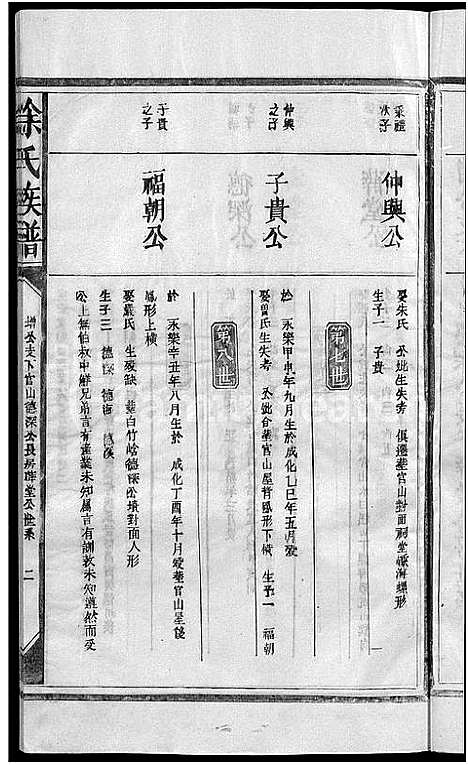 秉禮
次子
仲興公
娶朱氏 公妣生失考 俱遷葬官山對面祠堂嘴海螺形
生子一 子貴
第七世
仲興
之子
子貴公
於 永樂甲申年九月生於成化乙巳年五月歿
娶曾氏生失考 公妣合葬官山屋背臥形下橫 生子一 福朝
第八世
子貴
之子
福朝公
於 永樂辛丑年八月生於 成化丁酉年十月歿葬官山屋後
鳳形上橫
娶嚴氏 生歿缺 葬白竹嶺德深公墳對面人形
生子三 德深 德海 德溪
公上無伯叔中鮮兄弟言有產業未知屬言有訓教未知遵然而受
徐氏族譜
增公支下官山德深公長房錦堂公世系
二